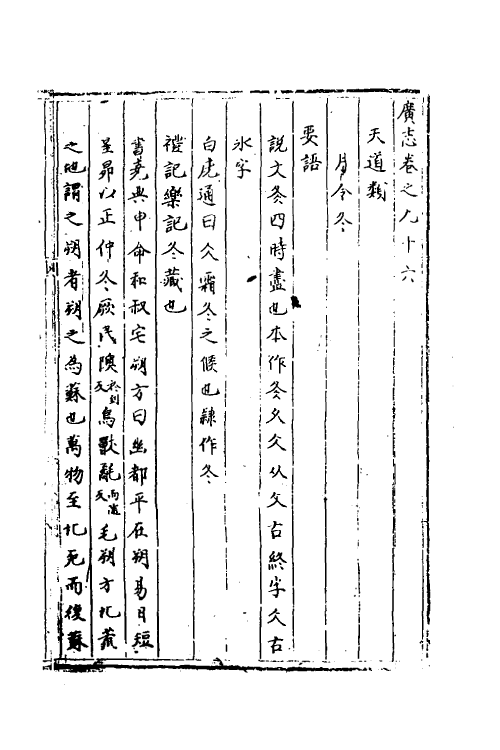 廣志卷之九十六
天道類
月令冬
要語
說文冬四時盡也本作冬从仌从夂古終字仌古
氷字
白虎通曰仌霜冬之候也隷作冬
禮記樂記冬藏也
書堯典申命和叔宅朔方曰幽都平在朔易日短
星昴以正仲冬厥民隩於到反鳥獸氄而隴反毛朔方北荒
之地謂之朔者朔之為蘇也萬物至北死而復蘇